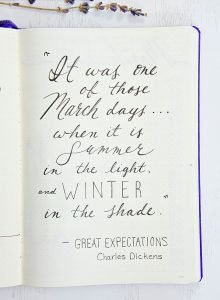 "It was one
of those
March days...
when it is
Summer
in the light,
and WINTER
in the shade."
- GREAT EXPECTATIONS
Charles Dickens